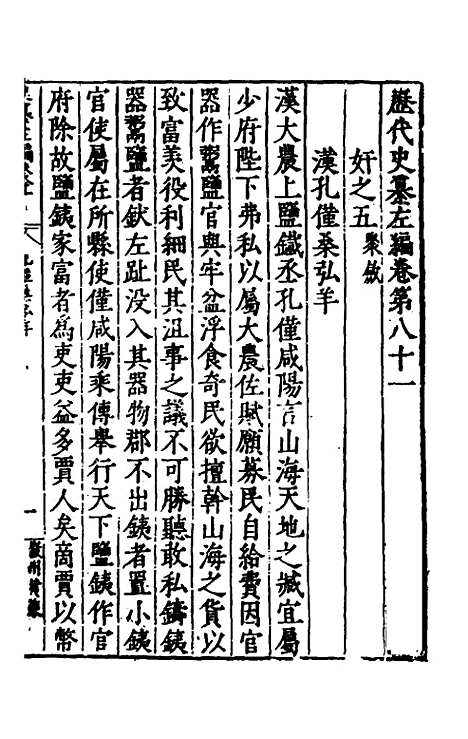 歷代史纂左編卷第八十一
奸之五聚斂
漢孔僅桑弘羊
漢大農上鹽鐵丞孔僅咸陽言山海天地之藏宜屬
少府陛下弗私以屬大農佐賦願募民自給費因官
器作鬻鹽官與牢盆浮食奇民欲擅斡山海之貨以
致富羙役利細民其沮事之議不可勝聽敢私鑄銕
器鬻鹽者釱左趾没入其器物郡不出銕者置小銕
官使屬在所縣使僅咸陽乘傳舉行天下鹽銕作官
府除故鹽銕家富者為吏吏益多賈人矣商賈以幣
一